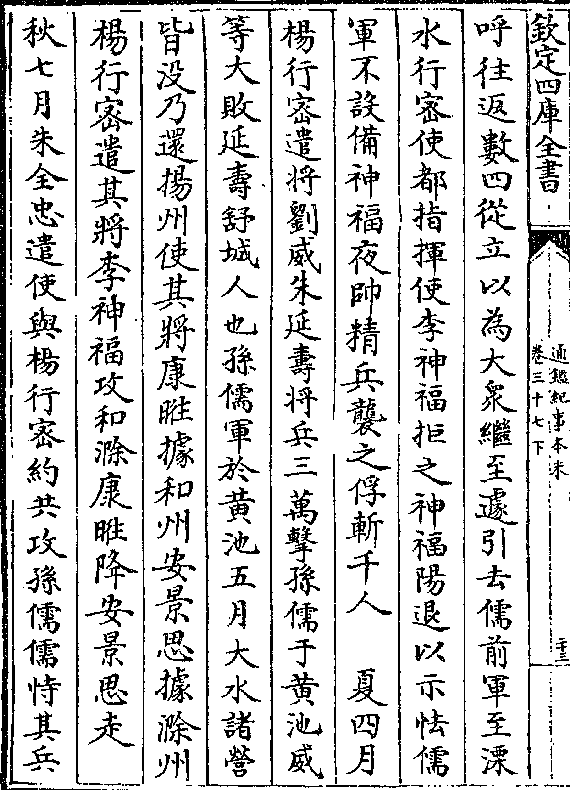 欽定四庫全書
通鑑紀事本末
卷三十七下
三十三
呼往返數四從立以為大衆繼至遽引去儒前軍至溧
水行密使都指揮使李神福拒之神福陽退以示怯儒
軍不設備神福夜帥精兵襲之俘斬千人　夏四月
楊行密遣將劉威朱延壽將兵三萬擊孫儒于黄池威
等大敗延壽舒城人也孫儒軍於黄池五月大水諸營
皆没乃還揚州使其將康暀據和州安景思據滁州
楊行密遣其將李神福攻和滁康暀降安景思走
秋七月朱全忠遣使與楊行密約共攻孫儒儒恃其兵